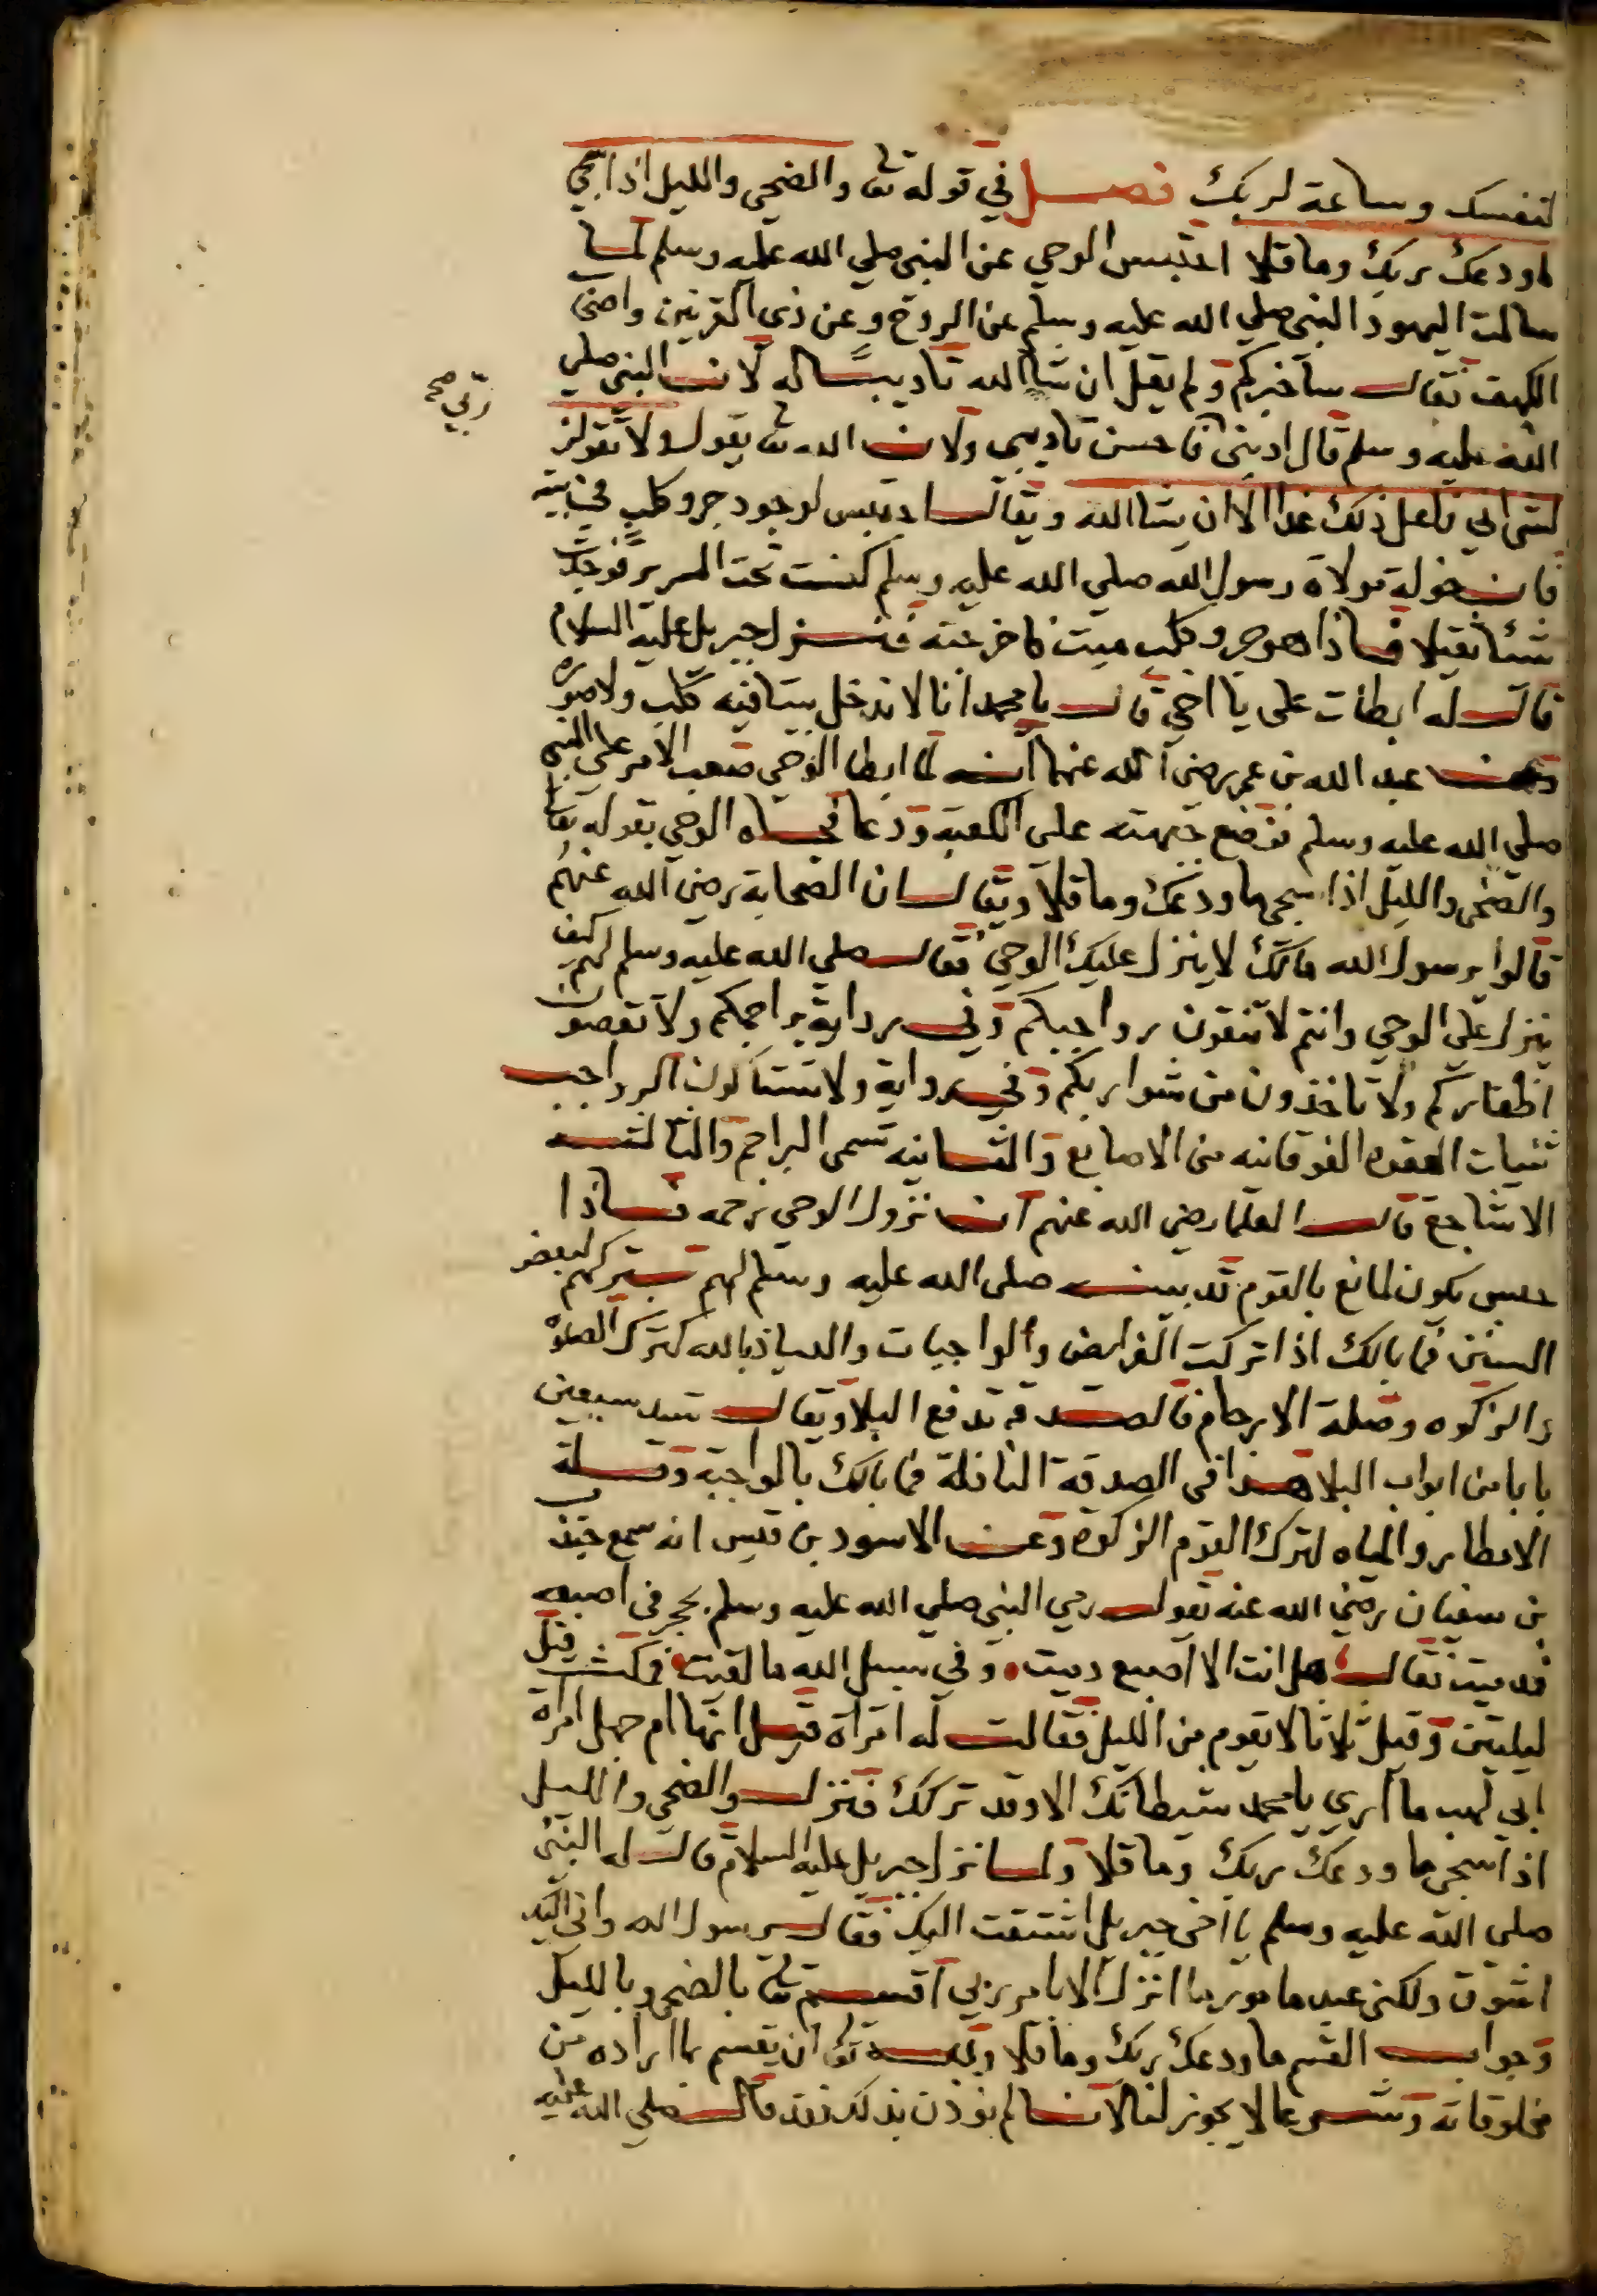 لنفسك وساعة لربك فصل في قوله تعا والضحي والليل اذا سجي
ما ودعك ربك وما قلا احتبس الوحي عن النبي صلي الله عليه وسلم لما
سالت اليهود النبي صلي الله عليه وسلم عن الروح وعن ذي القرنين واصحاب
الكهف فقال ساخبركم ولم يقل ان شا الله تاديبا له لان النبي صلي
الله عليه وسلم قال ادبني فاحسن تاديبي ولان الله تعا يقول ولا تقولن
ربي صح
لشي اني فاعل ذلك غدا الا ان يشا الله ويقال احتبس لوجود جرو كلب في بيته
قالت خولة مولاة رسول الله صلي الله عليه وسلم كنست تحت السرير فوجدت
شئا ثقيلا فاذا هو جرو كلب ميت فاخرجته فنزل جبريل عليه السلام
قال له ابطات على يا اخي قال يا محمد انا لا ندخل بيتا فيه كلب ولا صورة
وعن عبد الله بن عمر رضي الله عنهما انه لما ابطا الوحي صعب الامر على النبي
صلي الله عليه وسلم فوضع جبهته على الكعبة ودعا فجاه الوحي بقوله تعا
والضحى والليل اذا سجى ما ودعك وما قلا ويقال ان الصحابة رضي الله عنهم
قالوا يرسول الله مالك لا ينزل عليك الوحي فقال صلي الله عليه وسلم لهم كيف
ينزل علي الوحي وانتم لا تنقون رواجبكم وفي رواية براجمكم ولا تقصون
اظفاركم ولا تاخذون من شواربكم وفي رواية ولا تستاكون الرواجب
ثنيات العقود الفوقانيه من الاصابع والثانيه تسمى البراجم والثالثه
الاشاجع قال العلما رضي الله عنهم ان نزول الوحي رحمه فاذا
حبس يكون لمانع بالقوم قد بين صلى الله عليه وسلم لهم بتركهم لبعض
السنن فما بالك اذا تركت الفرايض والواجبات والعياذ بالله كترك الصلوة
والزكوه وصلة الارحام فالصدقة تدفع البلا ويقال تسد سبعين
بابا من ابواب البلا هذا في الصدقة النافلة فما بالك بالواجبة وقلة
الامطار والمياه لترك القوم الزكوة وعن الاسود بن قيس انه سمع جندب
بن سفيان رضي الله عنه يقول رمي النبي صلي الله عليه وسلم بحجر في اصبعه
فدميت فقال هل انت الا اصبع دميت وفي سبيل الله ما لقيت فمكث قيل
ليلتين وقيل ثلاثا لا يقوم من الليل فقالت له امراة قيل انها ام جهل امراة
ابي لهب ما اري يا محمد شيطانك الا وقد تركك فنزل والضحي والليل
اذا سجى ما ودعك ربك وما قلا ولما نزل جبريل عليه السلام قال له النبي
صلي الله عليه وسلم يا اخي جبريل اشتقت اليك فقال يرسول الله واني اليك
اشوق ولكني عبد مامور ما انزل الا بامر ربي اقسم تعا بالضحى وبالليل
وجواب القسم ما ودعك ربك وما قلا وله تعا ان يقسم بما اراده من
مخلوقاته وشرعا لا يجوز لنا لاننا لم نوذن بذلك فقد قال صلي الله عليه